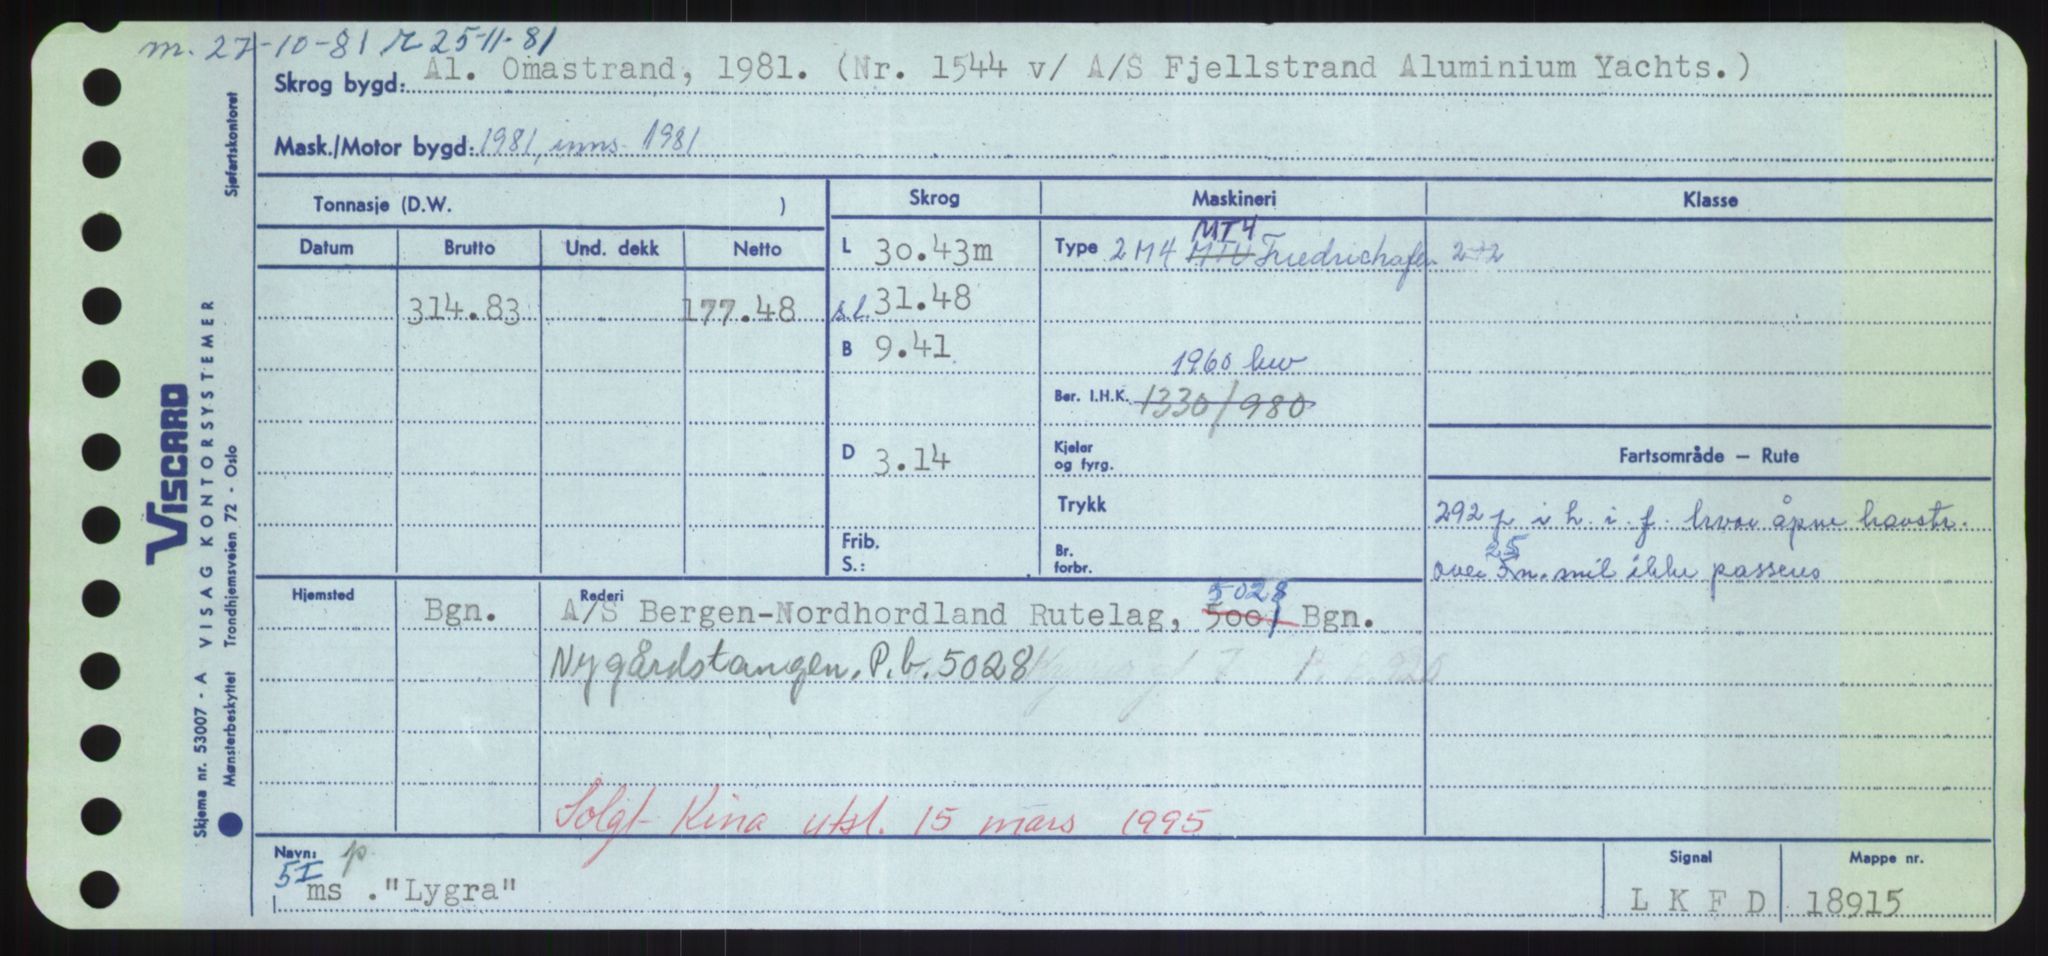 m. 27-10-81 r 25-11-81
Skrog bygd: Al. Omastrand, 1981. (Nr. 1544 v/ A/S Fjellstrand Aluminium Yachts.)
Mask./Motor bygd: 1981, inns. 1981
Tonnasje (D.W. )
Skrog
Maskineri
Klasse
Datum Brutto Und. dekk Netto
314.83 177.48
L 30.43m
s.l. 31.48
B 9.41
D 3.14
Frib.
S.:
MT4
Type 2 M4 MTU Friedrichafen 2+2
1960 kw
Ber. I.H.K. 1330/980
Kjeler
og fyrg.
Trykk
Br.
forbr.
Fartsområde — Rute
292 p i h. i. f. hvor åpne havstr.
25
over 5 n. mil ikke passeres
Hjemsted Bgn.
Rederi 5028
A/S Bergen-Nordhordland Rutelag, 500 Bgn.
Nygårdstangen, P.b. 5028
Solgt Kina utsl. 15 mars 1995
Navn: p
5I
ms ."Lygra"
Signal
L K F D
Mappe nr.
18915
VISCARD
VISAG KONTORSYSTEMER
Skjema nr. 53007 - A
Mønsterbeskyttet Trondhjemsveien 72 - Oslo
Sjøfartskontoret